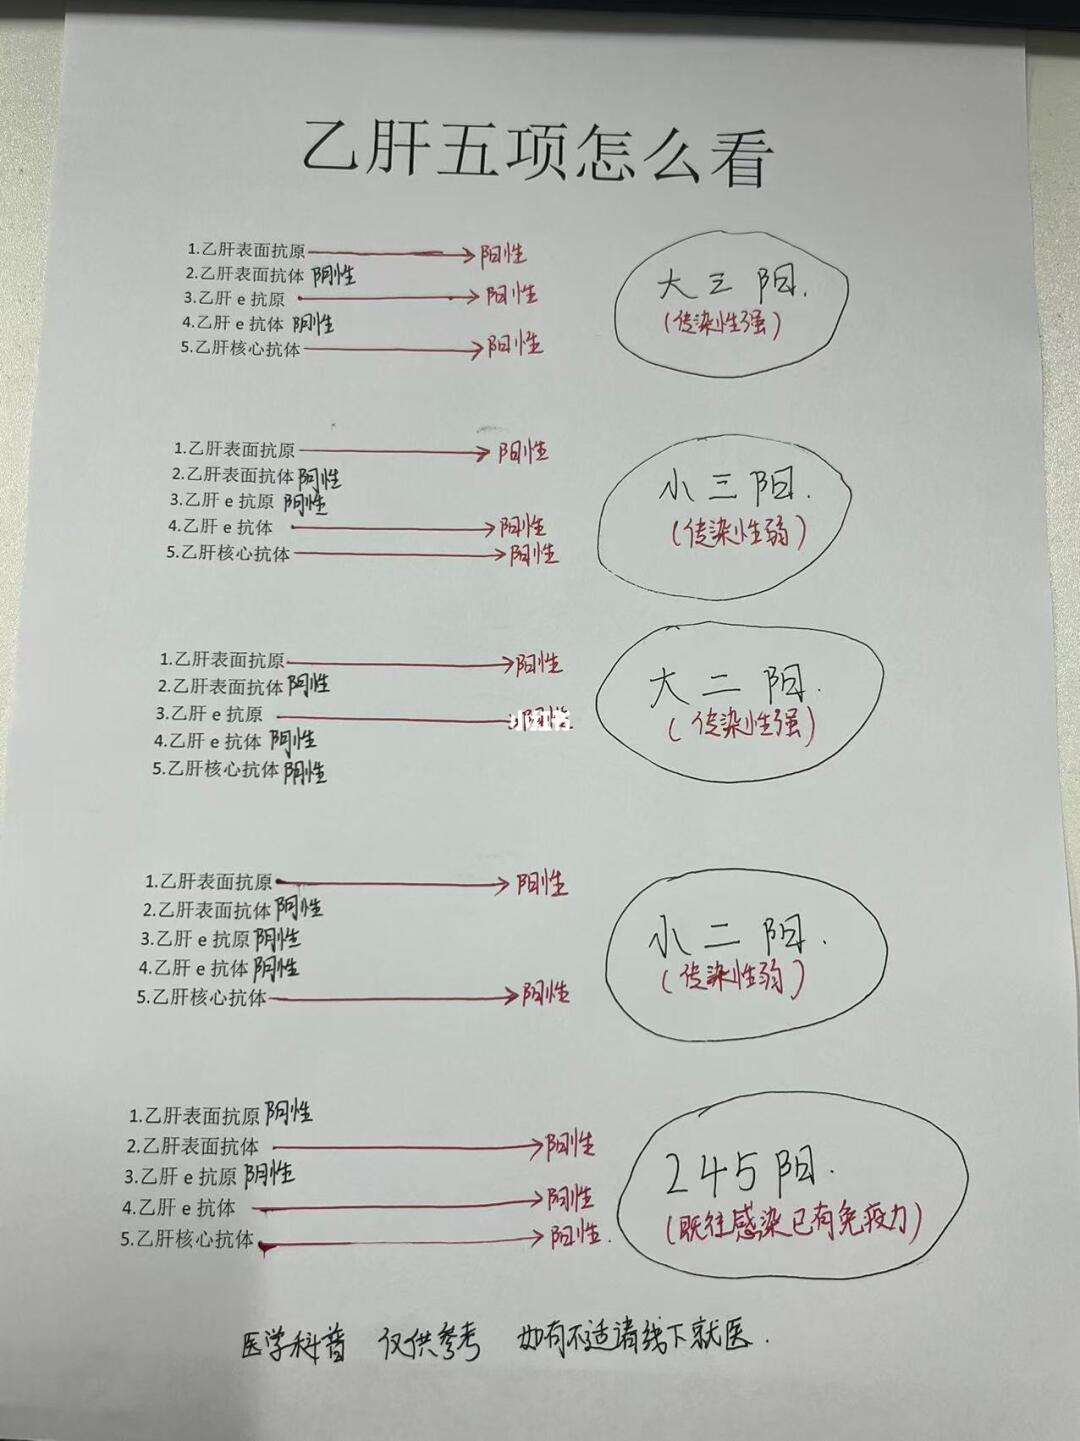 乙肝五项怎么看
1.乙肝表面抗原 阳性
2.乙肝表面抗体 阴性
3.乙肝 e 抗原 阳性
4.乙肝 e 抗体 阴性
5.乙肝核心抗体 阳性
大三阳.
(传染性强)
1.乙肝表面抗原 阳性
2.乙肝表面抗体 阴性
3.乙肝 e 抗原 阴性
4.乙肝 e 抗体 阳性
5.乙肝核心抗体 阳性
小三阳.
(传染性弱)
1.乙肝表面抗原 阳性
2.乙肝表面抗体 阴性
3.乙肝 e 抗原 性
小红书
4.乙肝 e 抗体 阴性
5.乙肝核心抗体 阴性
大二阳.
(传染性强)
1.乙肝表面抗原 阳性
2.乙肝表面抗体 阴性
3.乙肝 e 抗原 阴性
4.乙肝 e 抗体 阴性
5.乙肝核心抗体 阳性
小二阳.
(传染性弱)
1.乙肝表面抗原 阴性
2.乙肝表面抗体 阳性
3.乙肝 e 抗原 阴性
4.乙肝 e 抗体 阳性
5.乙肝核心抗体 阳性.
245阳.
(既往感染已有免疫力)
医学科普 仅供参考 如有不适请线下就医.